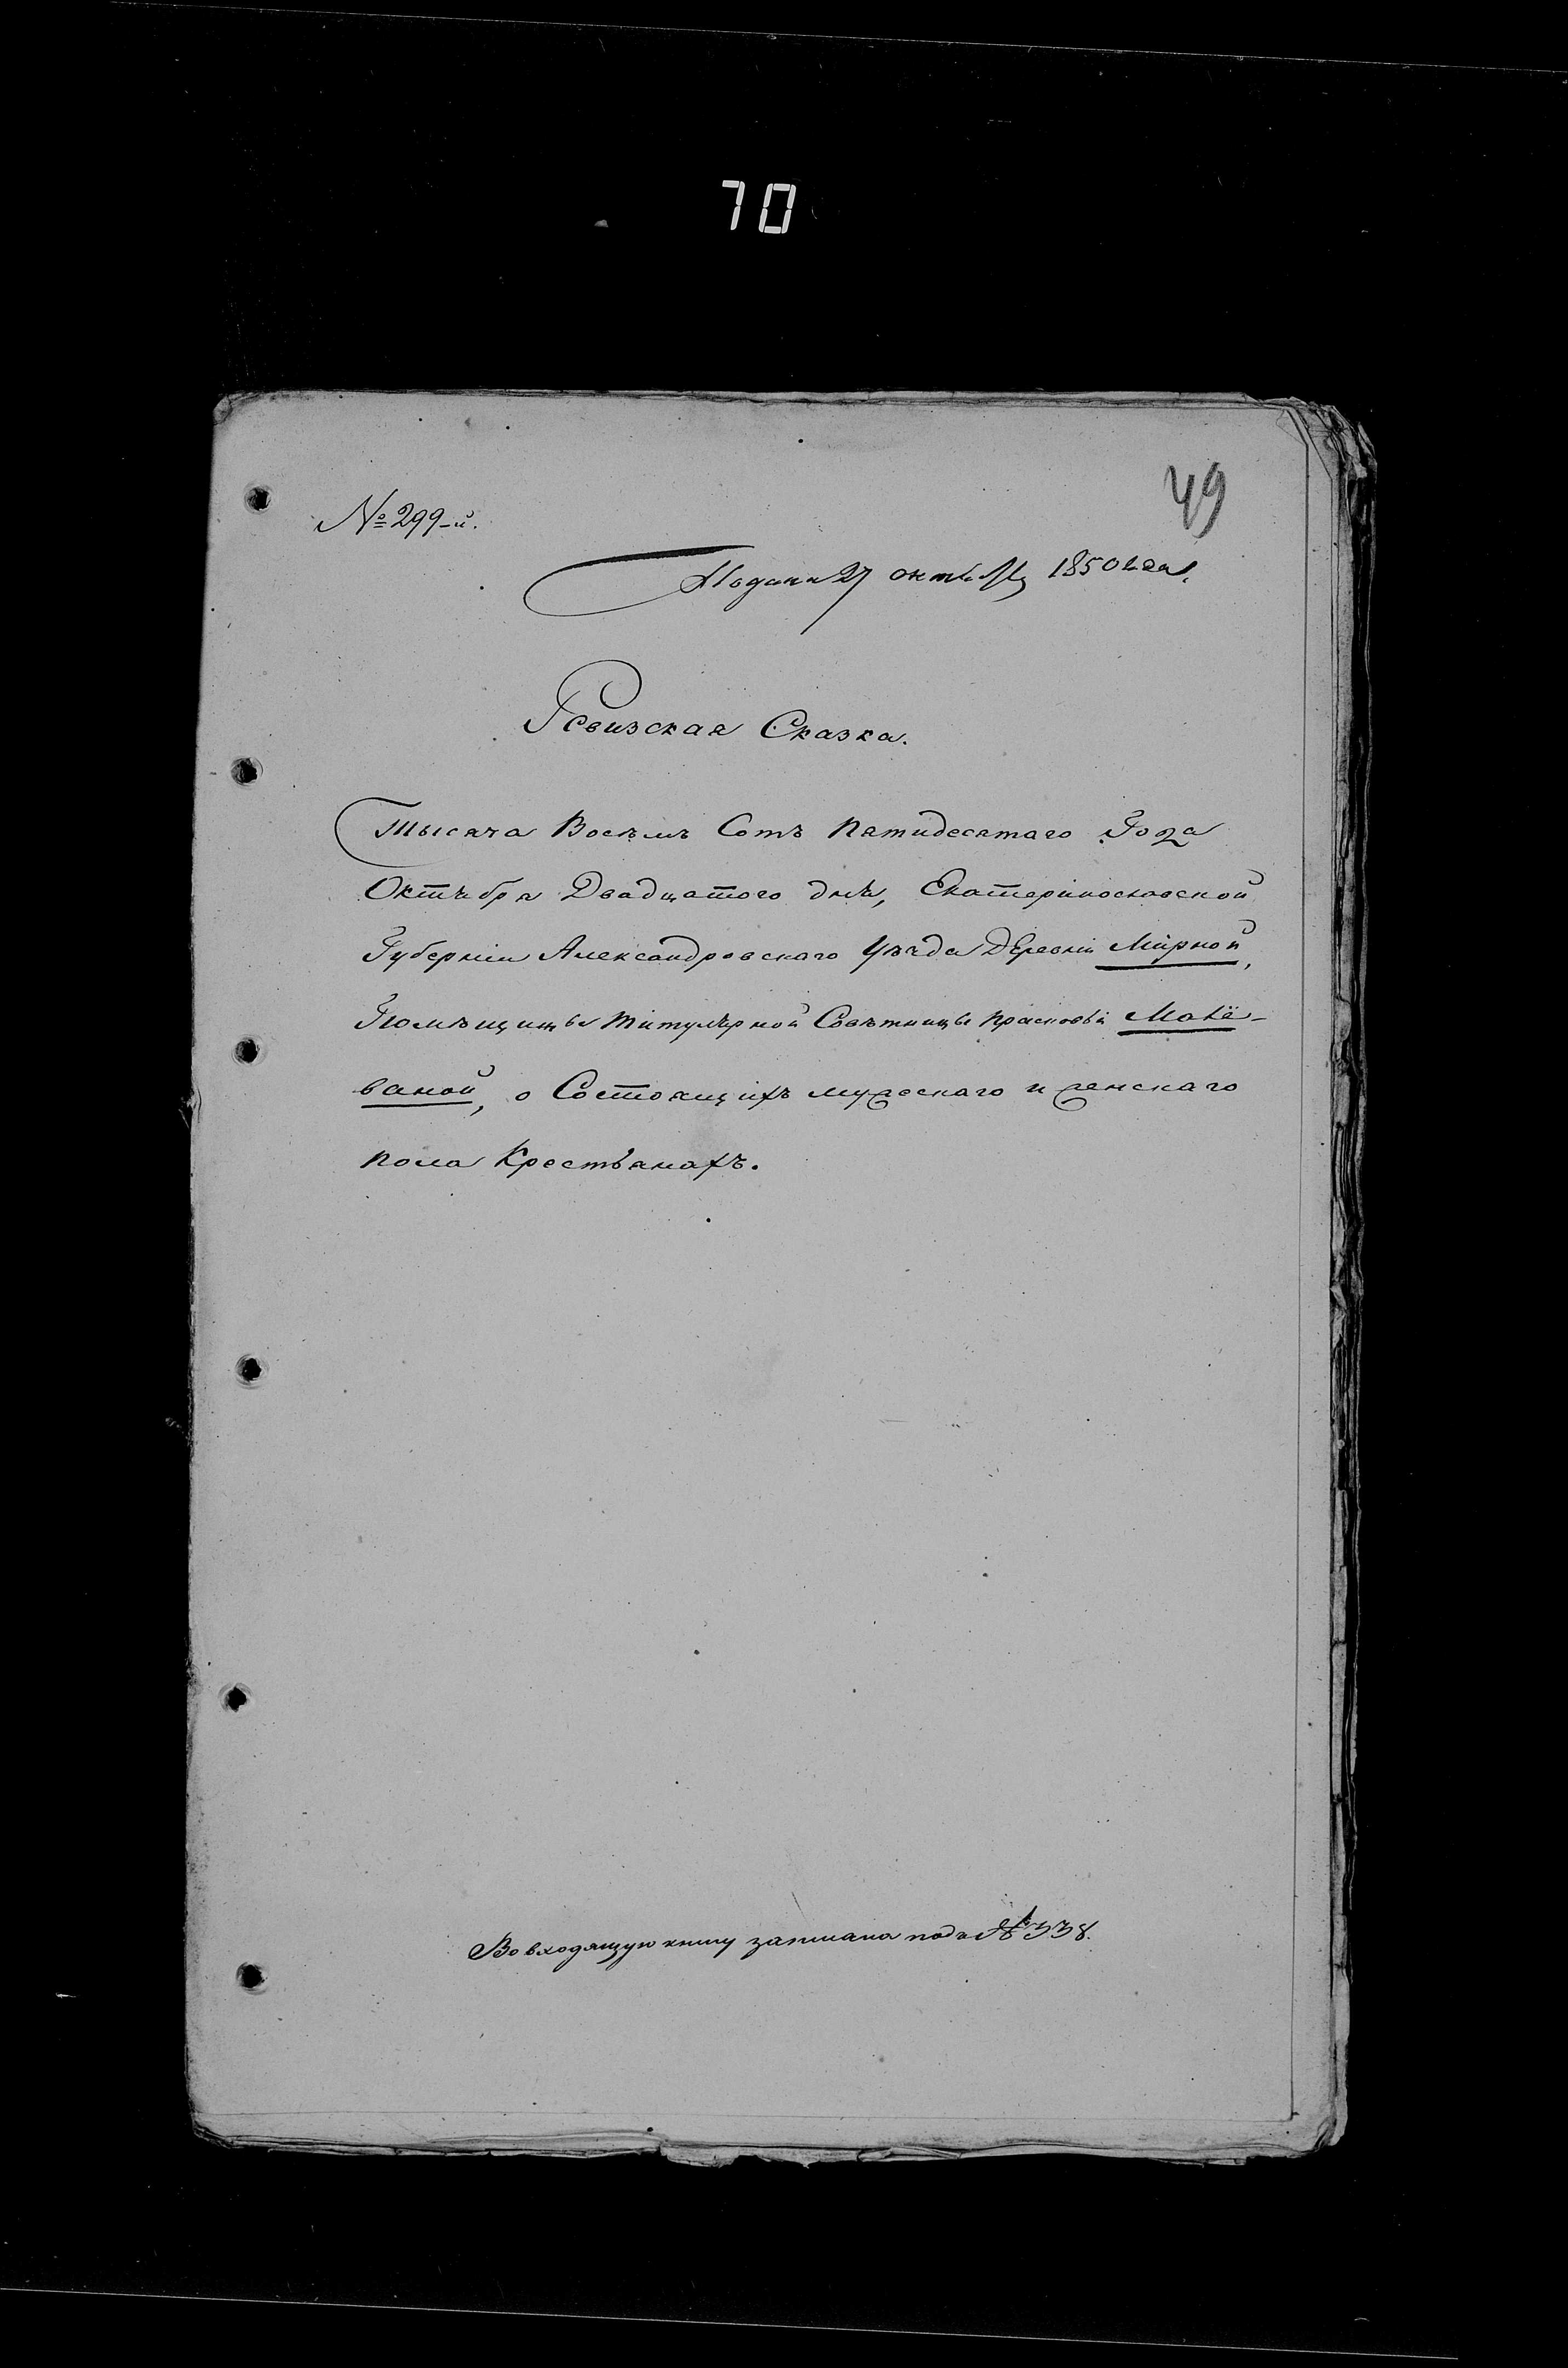 70
49
№ 299-й.
Подана 27 октября 1850 года.
Ревизская Сказка.
Тысяча Восемь Сотъ Пятидесятаго Года
Октября Двадцатого дня, Екатеринославской
Губерніи Александровскаго Уезда Деревни Мирной,
Помѣщицы Титулярной Совѣтницы Прасковьи Макё-
ваной, о Состоящихъ мужескаго и женскаго
пола Крестьянахъ.
Во входящую книгу записана подъ № 338.